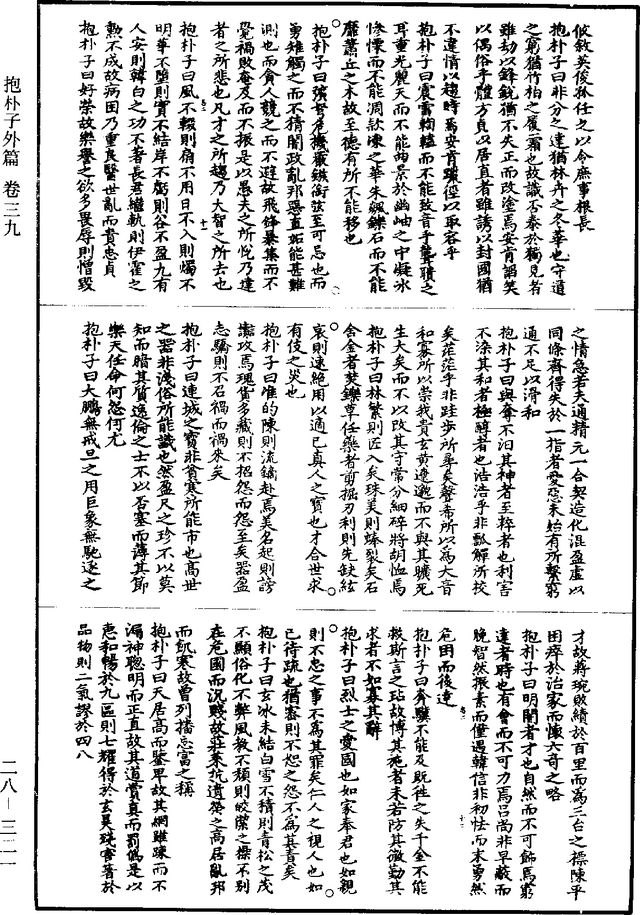 抱朴子外篇 卷三九
攸敘英俊孤任之以令庶事根長
抱朴子曰非分之達猶林卉之冬華也守道
之窮猶竹柏之履霜也故識否泰於獨見者
雖劫以鋒銳猶不失正而改塗焉安肯諂笑
以偶俗乎體方貞以居直者雖誘以封國猶
不違情以趨時焉安肯躐徑以取容乎
抱朴子曰震雷輷䡷而不能致音乎聾聵之
耳重光麗天而不能曲景於幽岫之中凝冰
慘慄而不能凋款凍之華朱飇鑠石而不能
靡蕭丘之木故至德有所不能移也
抱朴子曰弱弩危機嚴鏃銜弦至可忌也而
勇雉觸之而不猜闇政亂邦惡直妬能甚難
測也而貪人競之而不避故飛鋒暴集而不
覺禍敗奄及而不振是以愚夫之所悅乃達
者之所悲也凡才之所趨乃大智之所去也
抱朴子曰風不輟則扇不用日不入則燭不
明華不墮則實不結岸不虧則谷不盈九有
人安則韓白之功不著長君繼軌則伊霍之
勲不成故病困乃重良醫世亂而貴忠貞
抱朴子曰好榮故樂譽之欲多畏辱則憎毀
之情急若夫通精元一合契造化混盈虛以
同條齊得失於一指者愛惡未始有所繫窮
通不足以滑和
抱朴子曰與奪不汨其神者至粹者也利害
不染其和者極醇者也浩浩乎非瓢觶所校
矣茫茫乎非跬步所尋矣聲希所以為大音
和寡所以崇我貴玄黃遼邈而不與其曠死
生大矣而不以改其守常分細碎將胡恤焉
抱朴子曰林繁則匠入矣珠美則蜯裂矣石
含金者焚鑠草任藥者剪掘刃利則先缺絃
哀則速絕用以適已真人之寶也才合世求
有伎之災也
抱朴子曰准的陳則流鏑赴焉美名起則謗
讟攻焉瑰貨多藏則不招怨而怨至矣器盈
志驕則不召禍而禍來矣
抱朴子曰連城之寶非貧寒所能市也高世
之器非淺俗所能識也然盈尺之珍不以莫
知而暗其質逸倫之士不以否塞而薄其節
樂天任命何怨何尤
抱朴子曰大鵬無戒旦之用巨象無馳逐之
才故蔣琬敗績於百里而為三台之標陳平
困瘁於治家而懷六奇之略
抱朴子曰明闇者才也自然而不可飾焉窮
達者時也有會而不可力焉呂尚非早蔽而
晚智然振素而僅遇韓信非初怯而末勇然
危困而後達
抱朴子曰奔驥不能及既往之失千金不能
救斯言之玷故博其施者未若防其微勤其
求者不如寡其辭
抱朴子曰烈士之愛國也如家奉君也如親
則不忠之事不為其罪矣仁人之視人也如
已待疏也猶密則不恕之怨不為其責矣
抱朴子曰玄冰未結白雪不積則青松之茂
不顯俗化不弊風教不頹則皎潔之操不別
在危國而沉賤故莊萊抗遺榮之高居亂邦
而飢寒故曾列播忘富之稱
抱朴子曰天居高而鑒卑故其網雖疎而不
漏神聰明而正直故其道賞真而罰偽是以
惠和暢於九區則七耀得於玄昊殘害著於
品物則二氣謬於四八
二八—三二一